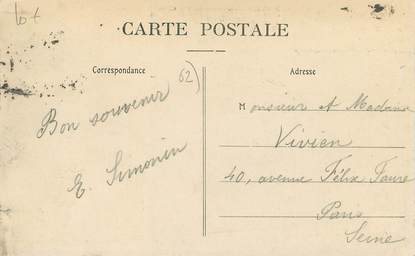 lot
CARTE POSTALE
Correspondance
Adresse
62)
Bon souvenir
E. Simonin
Monsieur et Madame
Vivien
40, avenue Félix Faure
Paris
Seine